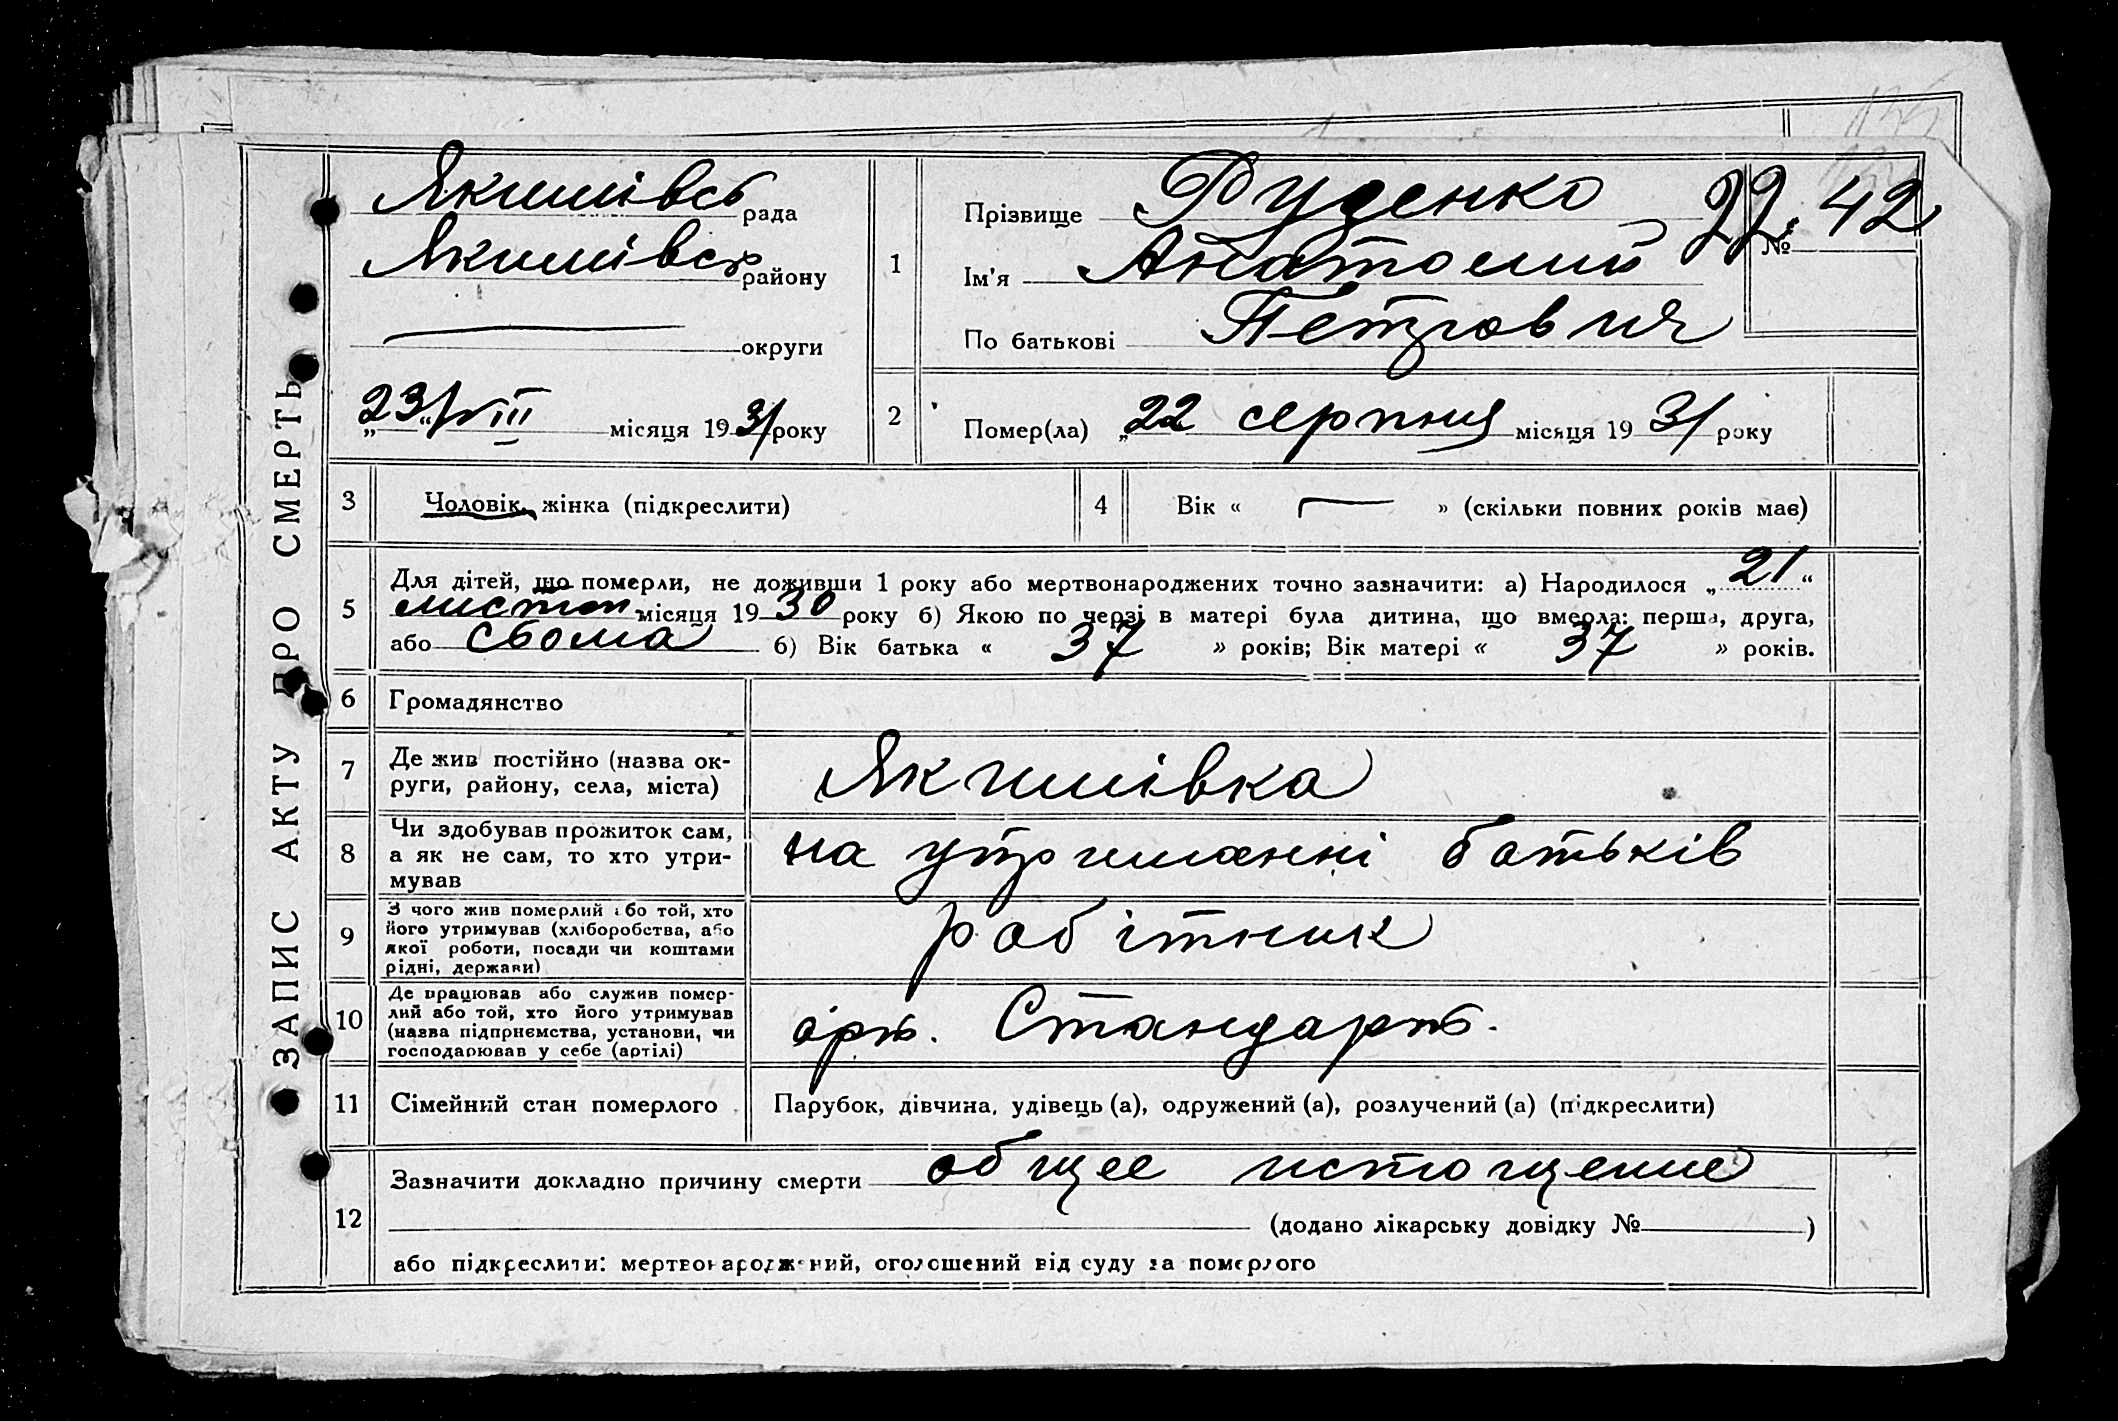 ЗАПИС АКТУ ПРО СМЕРТЬ
Якимівсь рада
Якимівськ району
округи
„23“/VIII місяця 1931 року
1
Прізвище Руденко
Ім'я Анатолий
По батькові Петрович
№ 42
2
Помер(ла) „22 серпня місяця 1931 року
3
Чоловік, жінка (підкреслити)
4
Вік « — » (скільки повних років має)
5
Для дітей, що померли, не доживши 1 року або мертвонароджених точно зазначити: а) Народилося „21“
листоп місяця 1930 року б) Якою по черзі в матері була дитина, що вмерла: перша, друга,
або сьома б) Вік батька « 37 » років; Вік матері « 37 » років.
6
Громадянство
7
Де жив постійно (назва ок-
руги, району, села, міста)
Якимівка
8
Чи здобував прожиток сам,
а як не сам, то хто утри-
мував
на утриманні батьків
9
З чого жив померлий або той, хто
його утримував (хліборобства, або
якої роботи, посади чи коштами
рідні, держави)
робітник
10
Де працював або служив помер-
лий або той, хто його утримував
(назва підприємства, установи, чи
господарював у себе (артілі)
арт. Стандарт.
11
Сімейний стан померлого
Парубок, дівчина, удівець (а), одружений (а), розлучений (а) (підкреслити)
12
Зазначити докладно причину смерти общее истощение
(додано лікарську довідку № )
або підкреслити: мертвонароджений, оголошений від суду за померлого